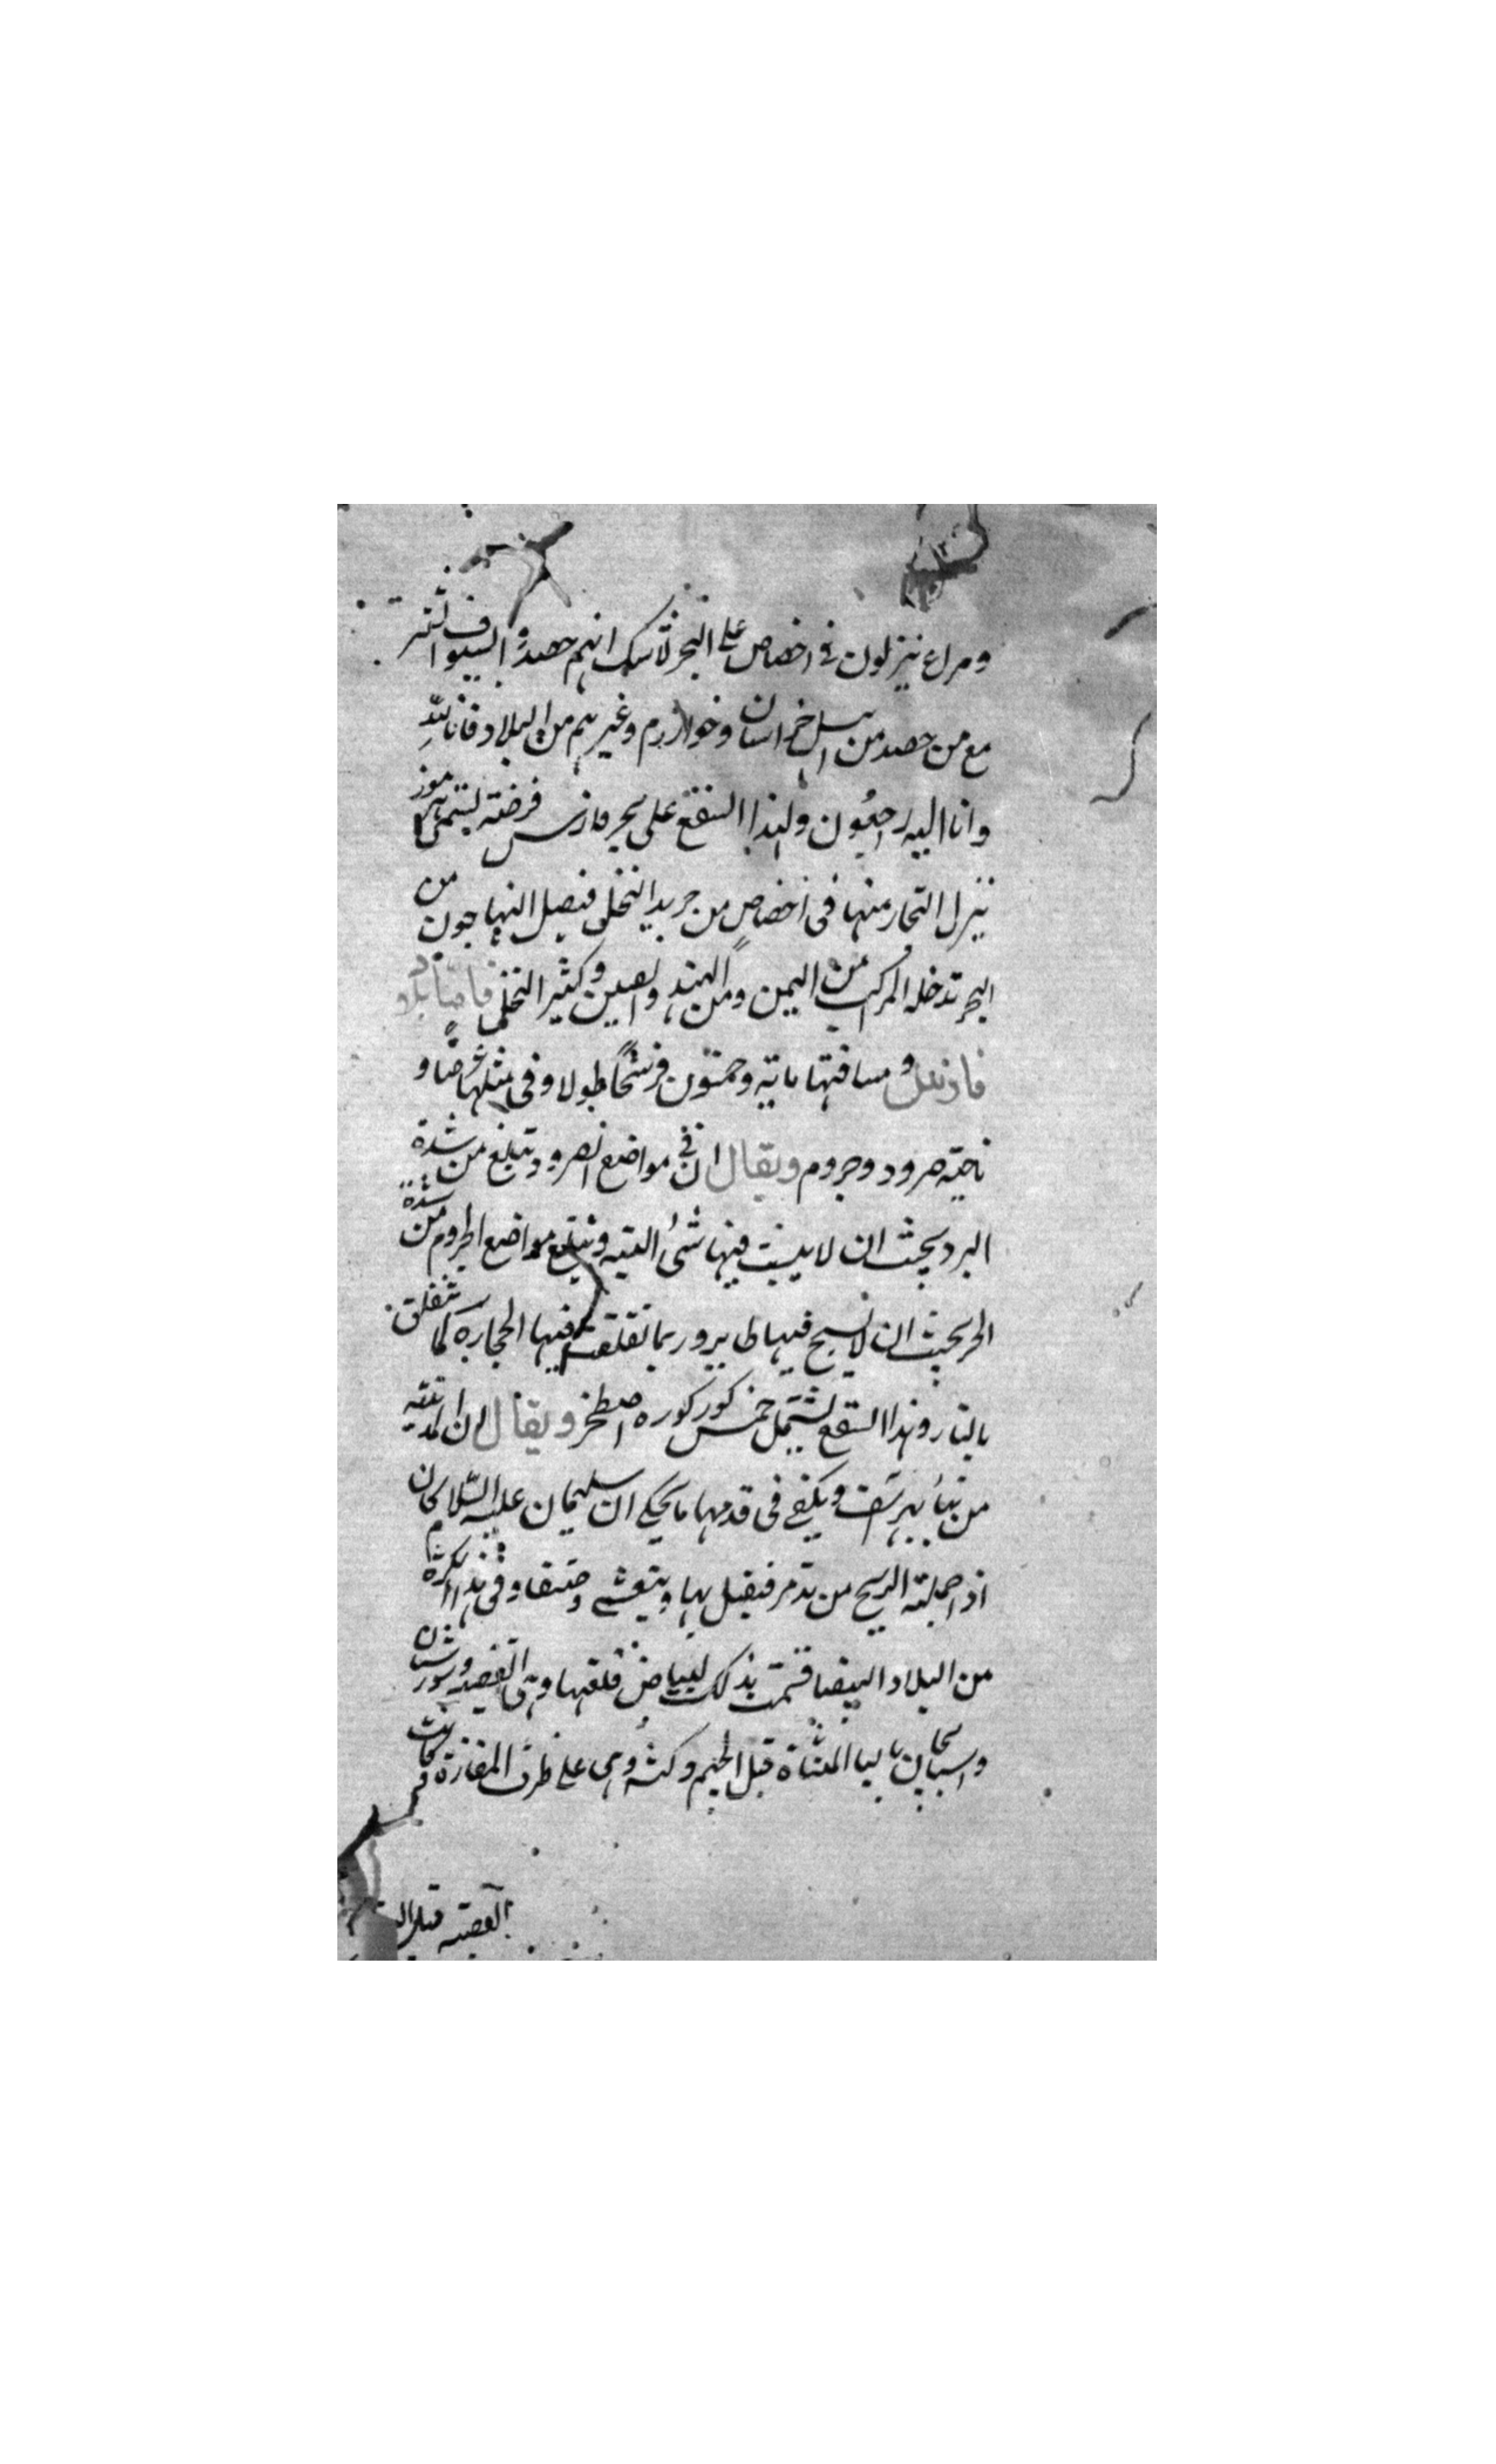 ومراع ينزلون في اخصاص على البحر لا شك انهم حصدوا السيوف التتر
مع من حصد من اهل خراسان وخوارزم وغيرهم من البلاد فانا لله
وانا اليه راجعون ولهذا السقع على بحر فارس فرضة يسمى هرموز
ينزل التجار منها فى اخصاص من جريد النخل فيصل اليها جون من
البحر تدخله المراكب من اليمن ومن الهند والصين وكثير النخل فاما بلاد
فارس ومسافتها ماية وخمسون فرسخا طولا وفى مثلها عرضا و
ناحية صرود وجروم ويقال ان فى مواضع الصرود تبلغ من شدة
البرد بحيث ان لا ينبت فيها شئ البتة وتبلغ مواضع الجروم من شدة
الحر بحيث ان لا يسبح فيها طاير وربما تفلقت فيها الحجارة كما تنفلق
بالنار وهذا السقع يشتمل خمس كور كورة اصطخر ويقال ان المدينة
من بناء بهراسف ويكفى فى قدمها ما يحكى ان سليمان عليه السلام كان
اذا حملته الريح من تدمر فيقيل بها ويتعشى وفى هذا الكورة
من البلاد البيضا قسمت بذلك لبياض قلعتها وهى القصبة
بالياء المثناة قبل الجيم وكثه وهى على طرف المفازة وكانت
القصبة قبل